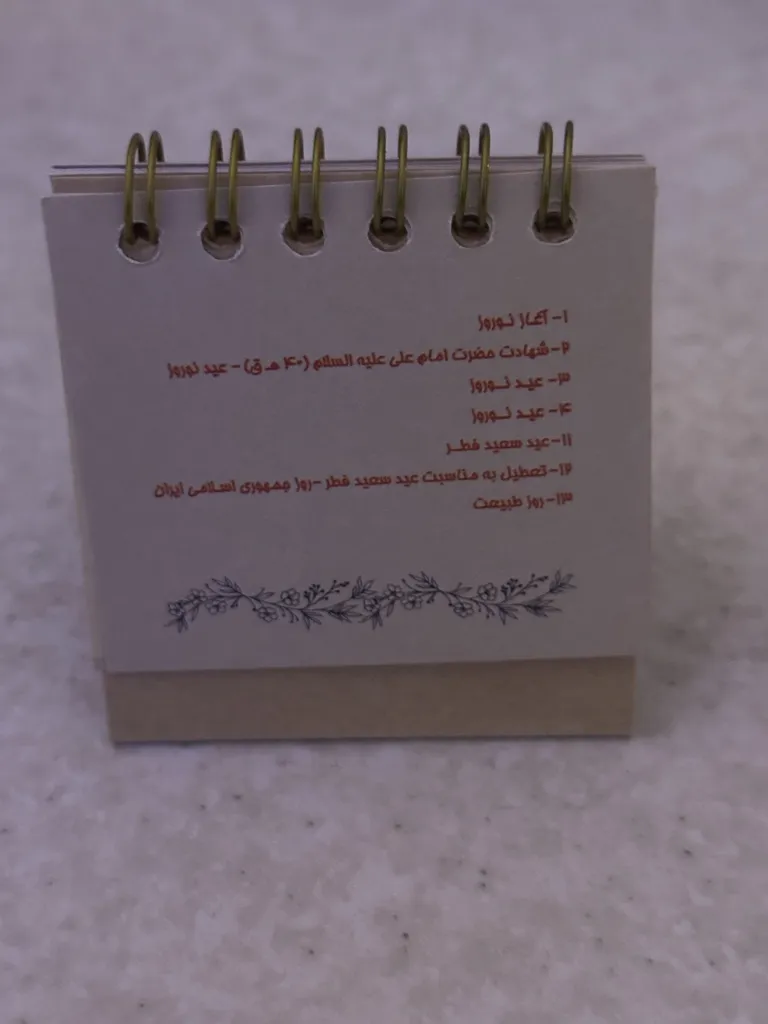 ۱- آغاز نوروز
۲-شهادت حضرت امام علی علیه السلام (۴۰ هـ ق) - عید نوروز
۳- عید نوروز
۴- عید نوروز
۱۱-عید سعید فطر
۱۲-تعطیل به مناسبت عید سعید فطر -روز جمهوری اسلامی ایران
۱۳-روز طبیعت